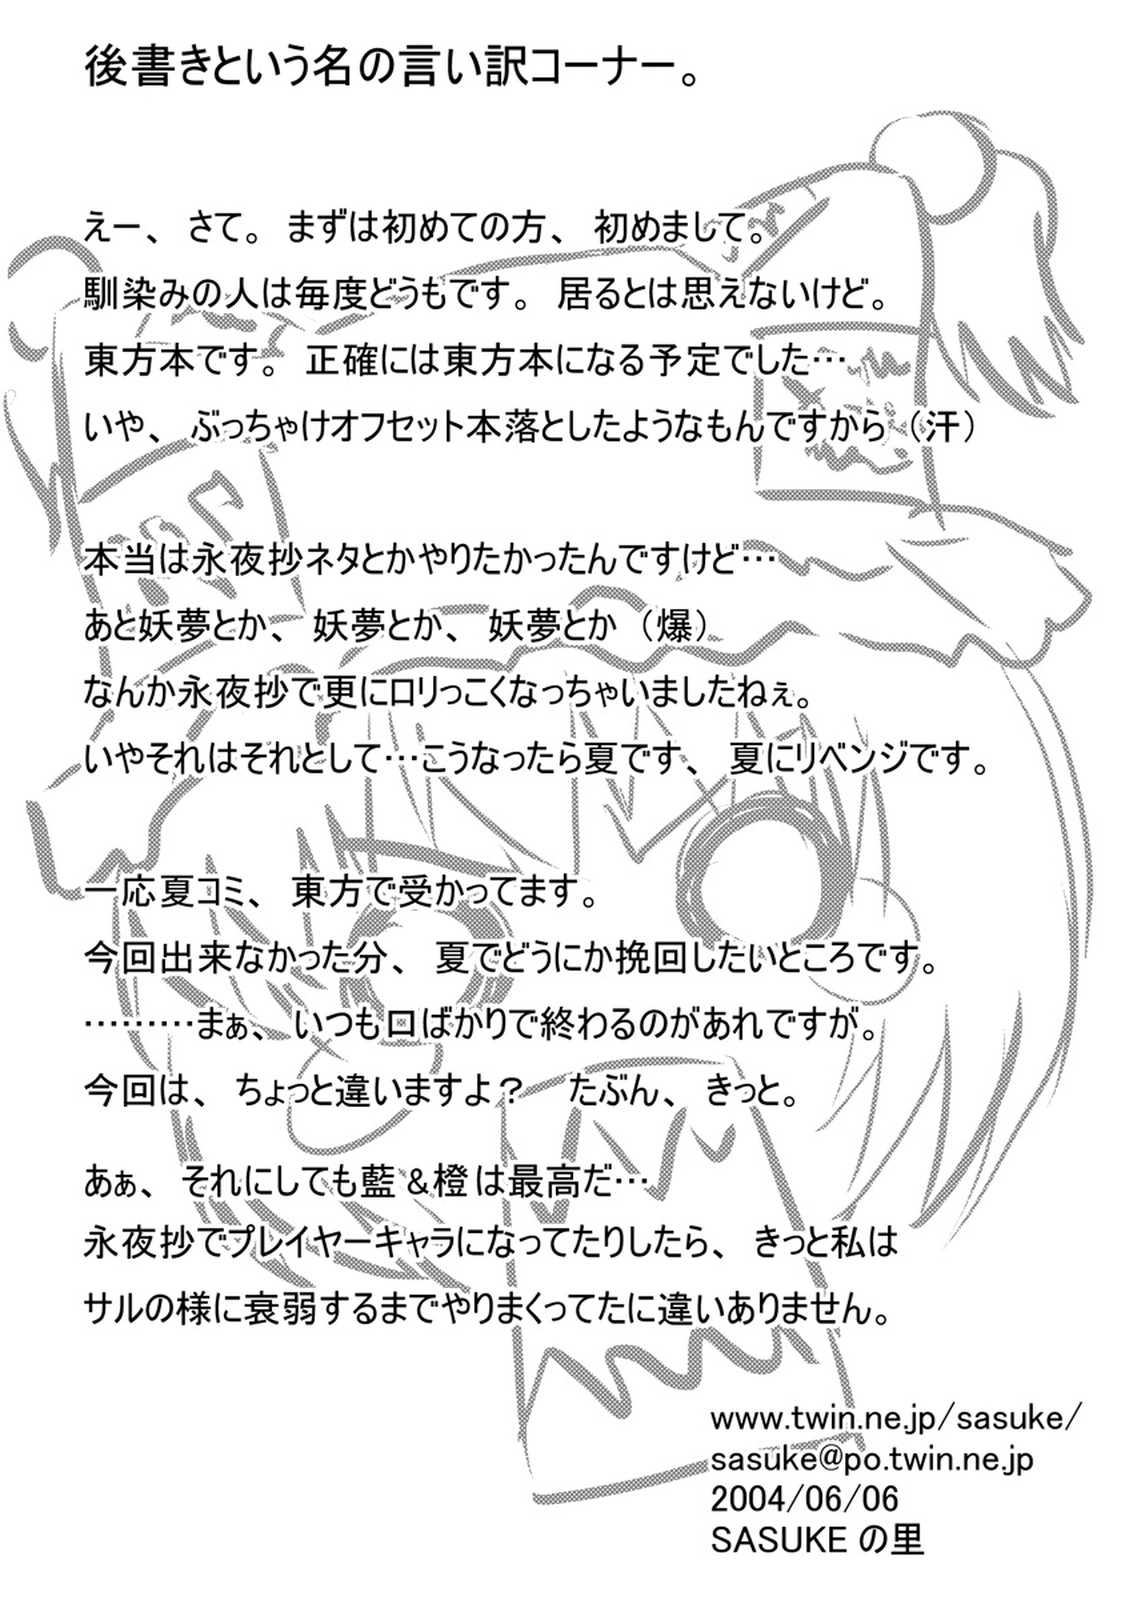 後書きという名の言い訳コーナー。
えー、さて。まずは初めての方、初めまして。
馴染みの人は毎度どうもです。居るとは思えないけど。
東方本です。正確には東方本になる予定でした…
いや、ぶっちゃけオフセット本落としたようなもんですから（汗）
本当は永夜抄ネタとかやりたかったんですけど…
あと妖夢とか、妖夢とか、妖夢とか（爆）
なんか永夜抄で更にロリっこくなっちゃいましたねぇ。
いやそれはそれとして…こうなったら夏です、夏にリベンジです。
一応夏コミ、東方で受かってます。
今回出来なかった分、夏でどうにか挽回したいところです。
………まぁ、いつも口ばかりで終わるのがあれですが。
今回は、ちょっと違いますよ？　たぶん、きっと。
あぁ、それにしても藍＆橙は最高だ…
永夜抄でプレイヤーキャラになってたりしたら、きっと私は
サルの様に衰弱するまでやりまくってたに違いありません。
www.twin.ne.jp/sasuke/
sasuke@po.twin.ne.jp
2004/06/06
SASUKEの里